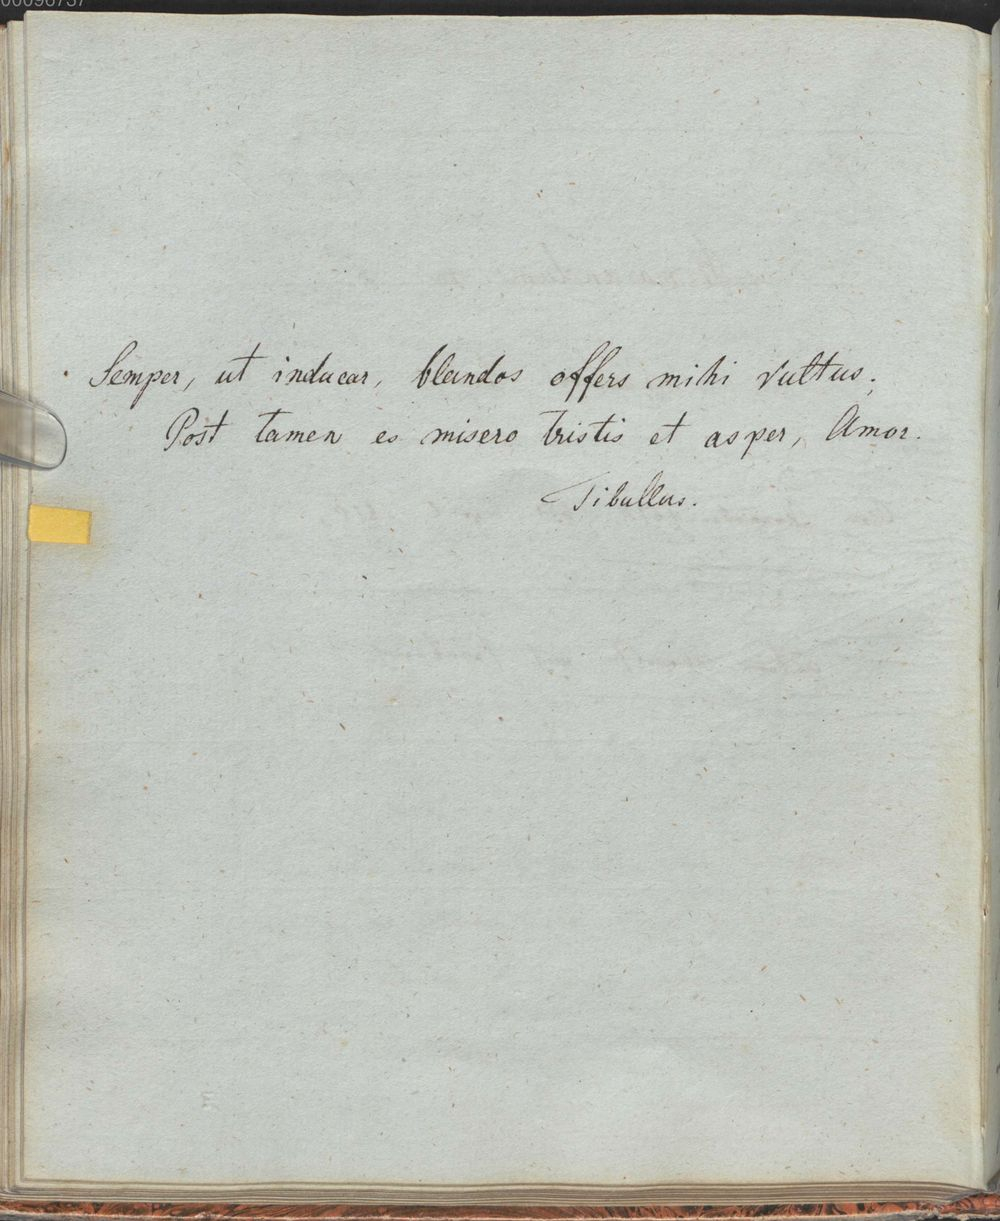 00096737
Semper, ut inducar, blandos offers mihi vultus.
Post tamen es misero tristis et asper, Amor.
Tibullus.